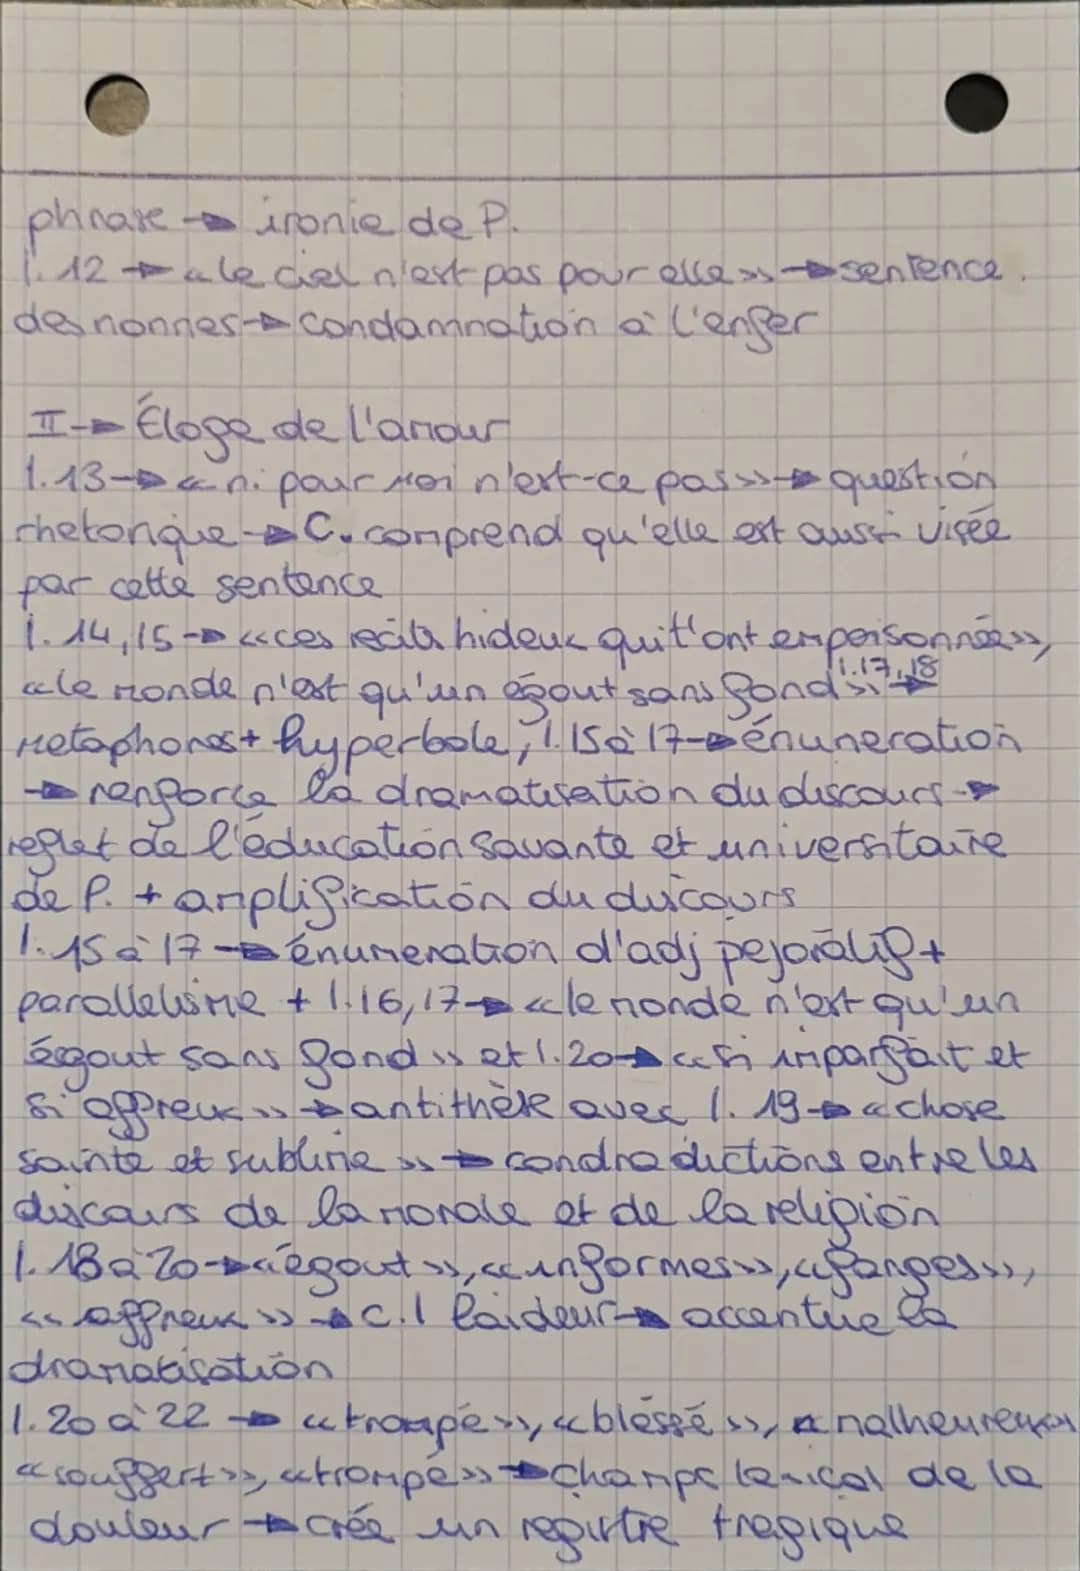 phrase → ironie de P.
l. 12 → « le ciel n'est pas pour elle » → sentence
des nonnes → condamnation à l'enfer
II → Éloge de l'amour
l. 13 → « ni pour moi n'est-ce pas » → question
rhetorique → C. comprend qu'elle est aussi visée
par cette sentence
l. 14, 15 → « ces recits hideux qui t'ont empoisonnée »,
« le monde n'est qu'un égout sans fond » l. 17, 18 →
metaphores + hyperbole, l. 15 à 17 → énumeration
→ renforce la dramatisation du discours →
reflet de l'éducation savante et universitaire
de P. + amplification du discours
l. 15 à 17 → énumeration d'adj pejoratif +
parallelisme + l. 16, 17 → « le monde n'est qu'un
égout sans fond » et l. 20 → « si imparfait et
si affreux » → antithèse avec l. 19 → « chose
sainte et sublime » → condradictions entre les
discours de la morale et de la religion
l. 18 à 20 → « égout », « informes », « fanges »,
« affreux » → c.l laideur → accentue la
dramatisation
l. 20 à 22 → « trompé », « bléssé », « malheureux »
« souffert », « trompé » → champs lexical de la
douleur → crée un registre tragique